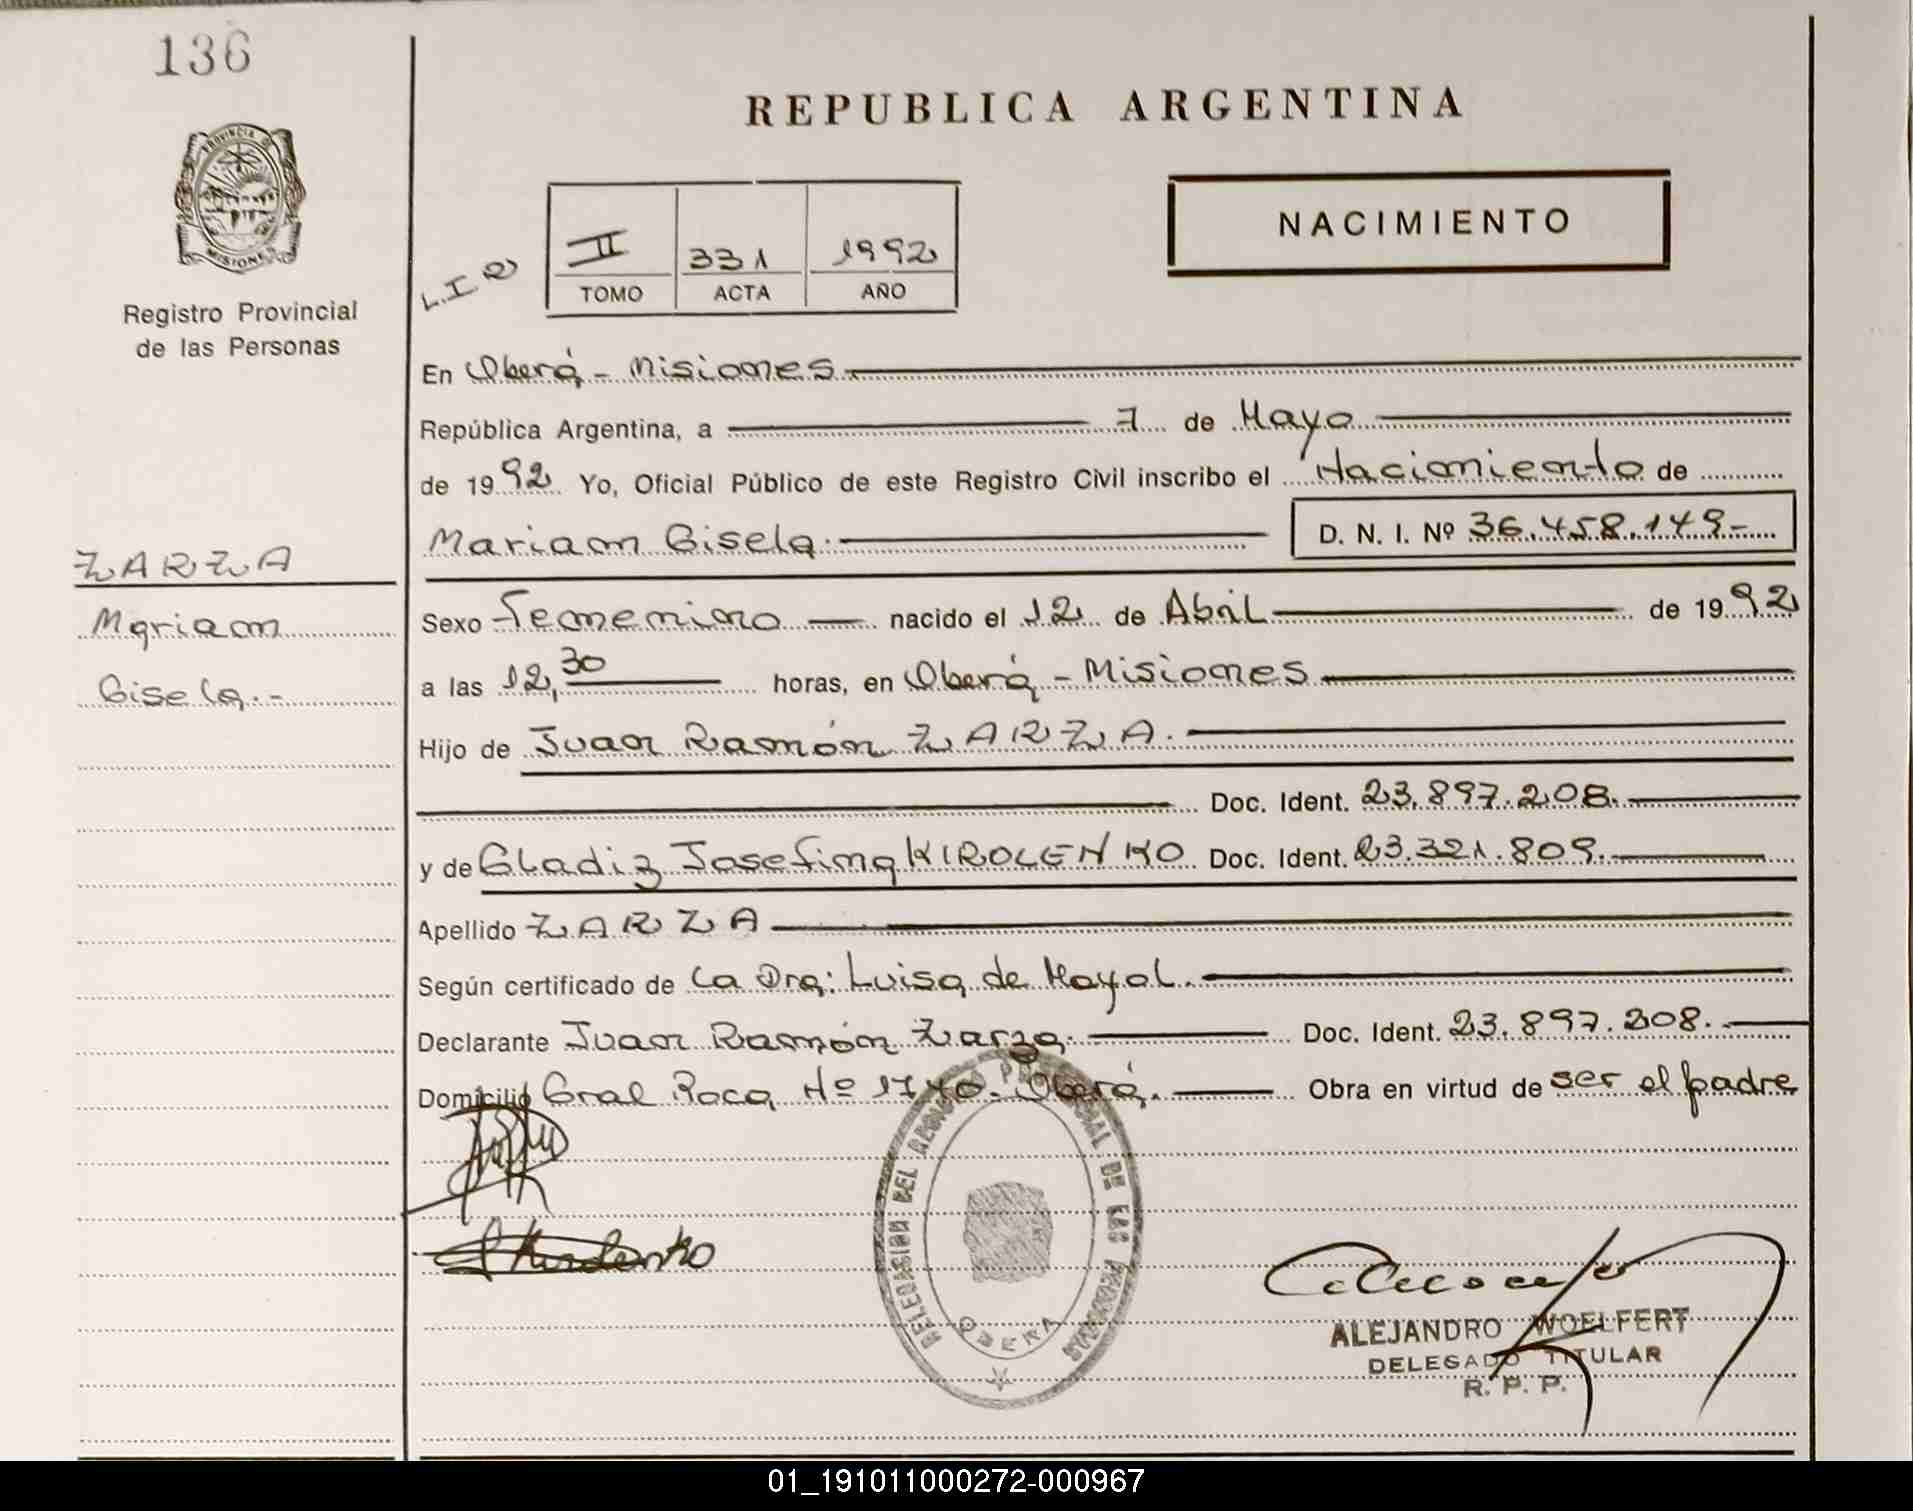 136
REPUBLICA ARGENTINA
PROVINCIA DE
MISIONES
NACIMIENTO
L. I 2
II 331 1992
TOMO ACTA AÑO
Registro Provincial
de las Personas
En Oberá - Misiones
República Argentina, a 7 de Mayo
de 1992 Yo, Oficial Público de este Registro Civil inscribo el Nacimiento de
Mariam Gisela.
D. N. I. Nº 36.458.149-
ZARZA
Mariam
Gisela.-
Sexo Femenino nacido el 12 de Abril de 1992
a las 12,30 horas, en Oberá - Misiones
Hijo de Juan Ramón ZARZA.
Doc. Ident. 23.897.208.
y de Gladiz Josefina KIROLENKO Doc. Ident. 23.321.809.
Apellido ZARZA
Según certificado de La Dra: Luisa de Mayol.
Declarante Juan Ramón Zarza. Doc. Ident. 23.897.208.
Domicilio Gral Roca Nº 1740. Oberá. Obra en virtud de ser el padre
DELEGACION DEL REGISTRO PROVINCIAL DE LAS PERSONAS
OBERA
ALEJANDRO WOELFERT
DELEGADO TITULAR
R. P. P.
01_191011000272-000967